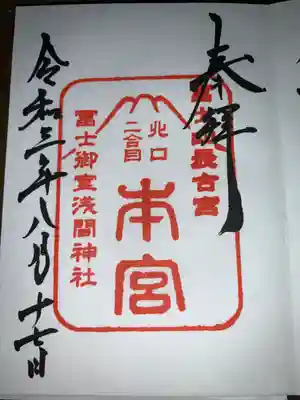 奉拝
富士山最古宮
北口
二合目
本宮
冨士御室浅間神社
令和三年八月十七日